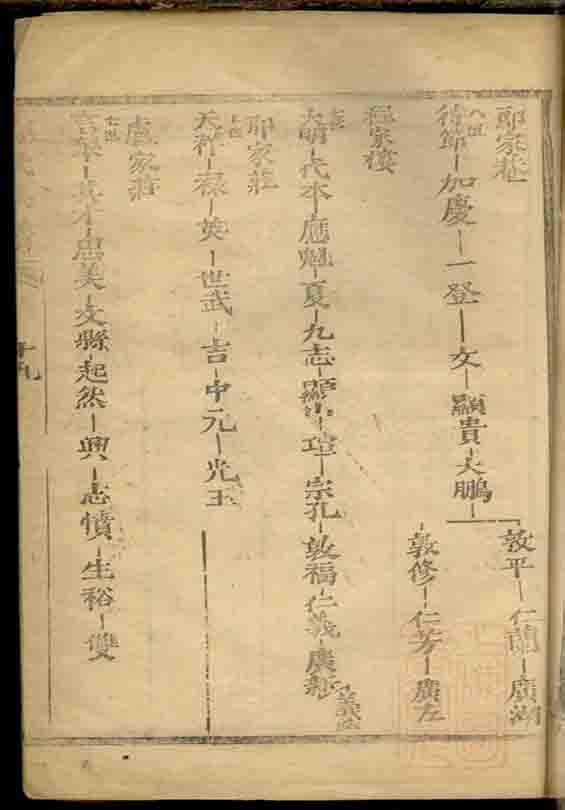 邴家巷
八世
待節—加慶—一登—文—顯貴—大鵬—
敦平—仁蘭—廣湖
敦修—仁芳—廣左
程家樓
大明—代本—應魁—夏—九志—顯—瑄—宗孔—敦福—仁義—廣新
邴家莊
七世
天祥—祿—英—世武—吉—中元—光玉
盧家莊
七世
忠美—文縣—起然—興—志憤—生裕—雙
十九